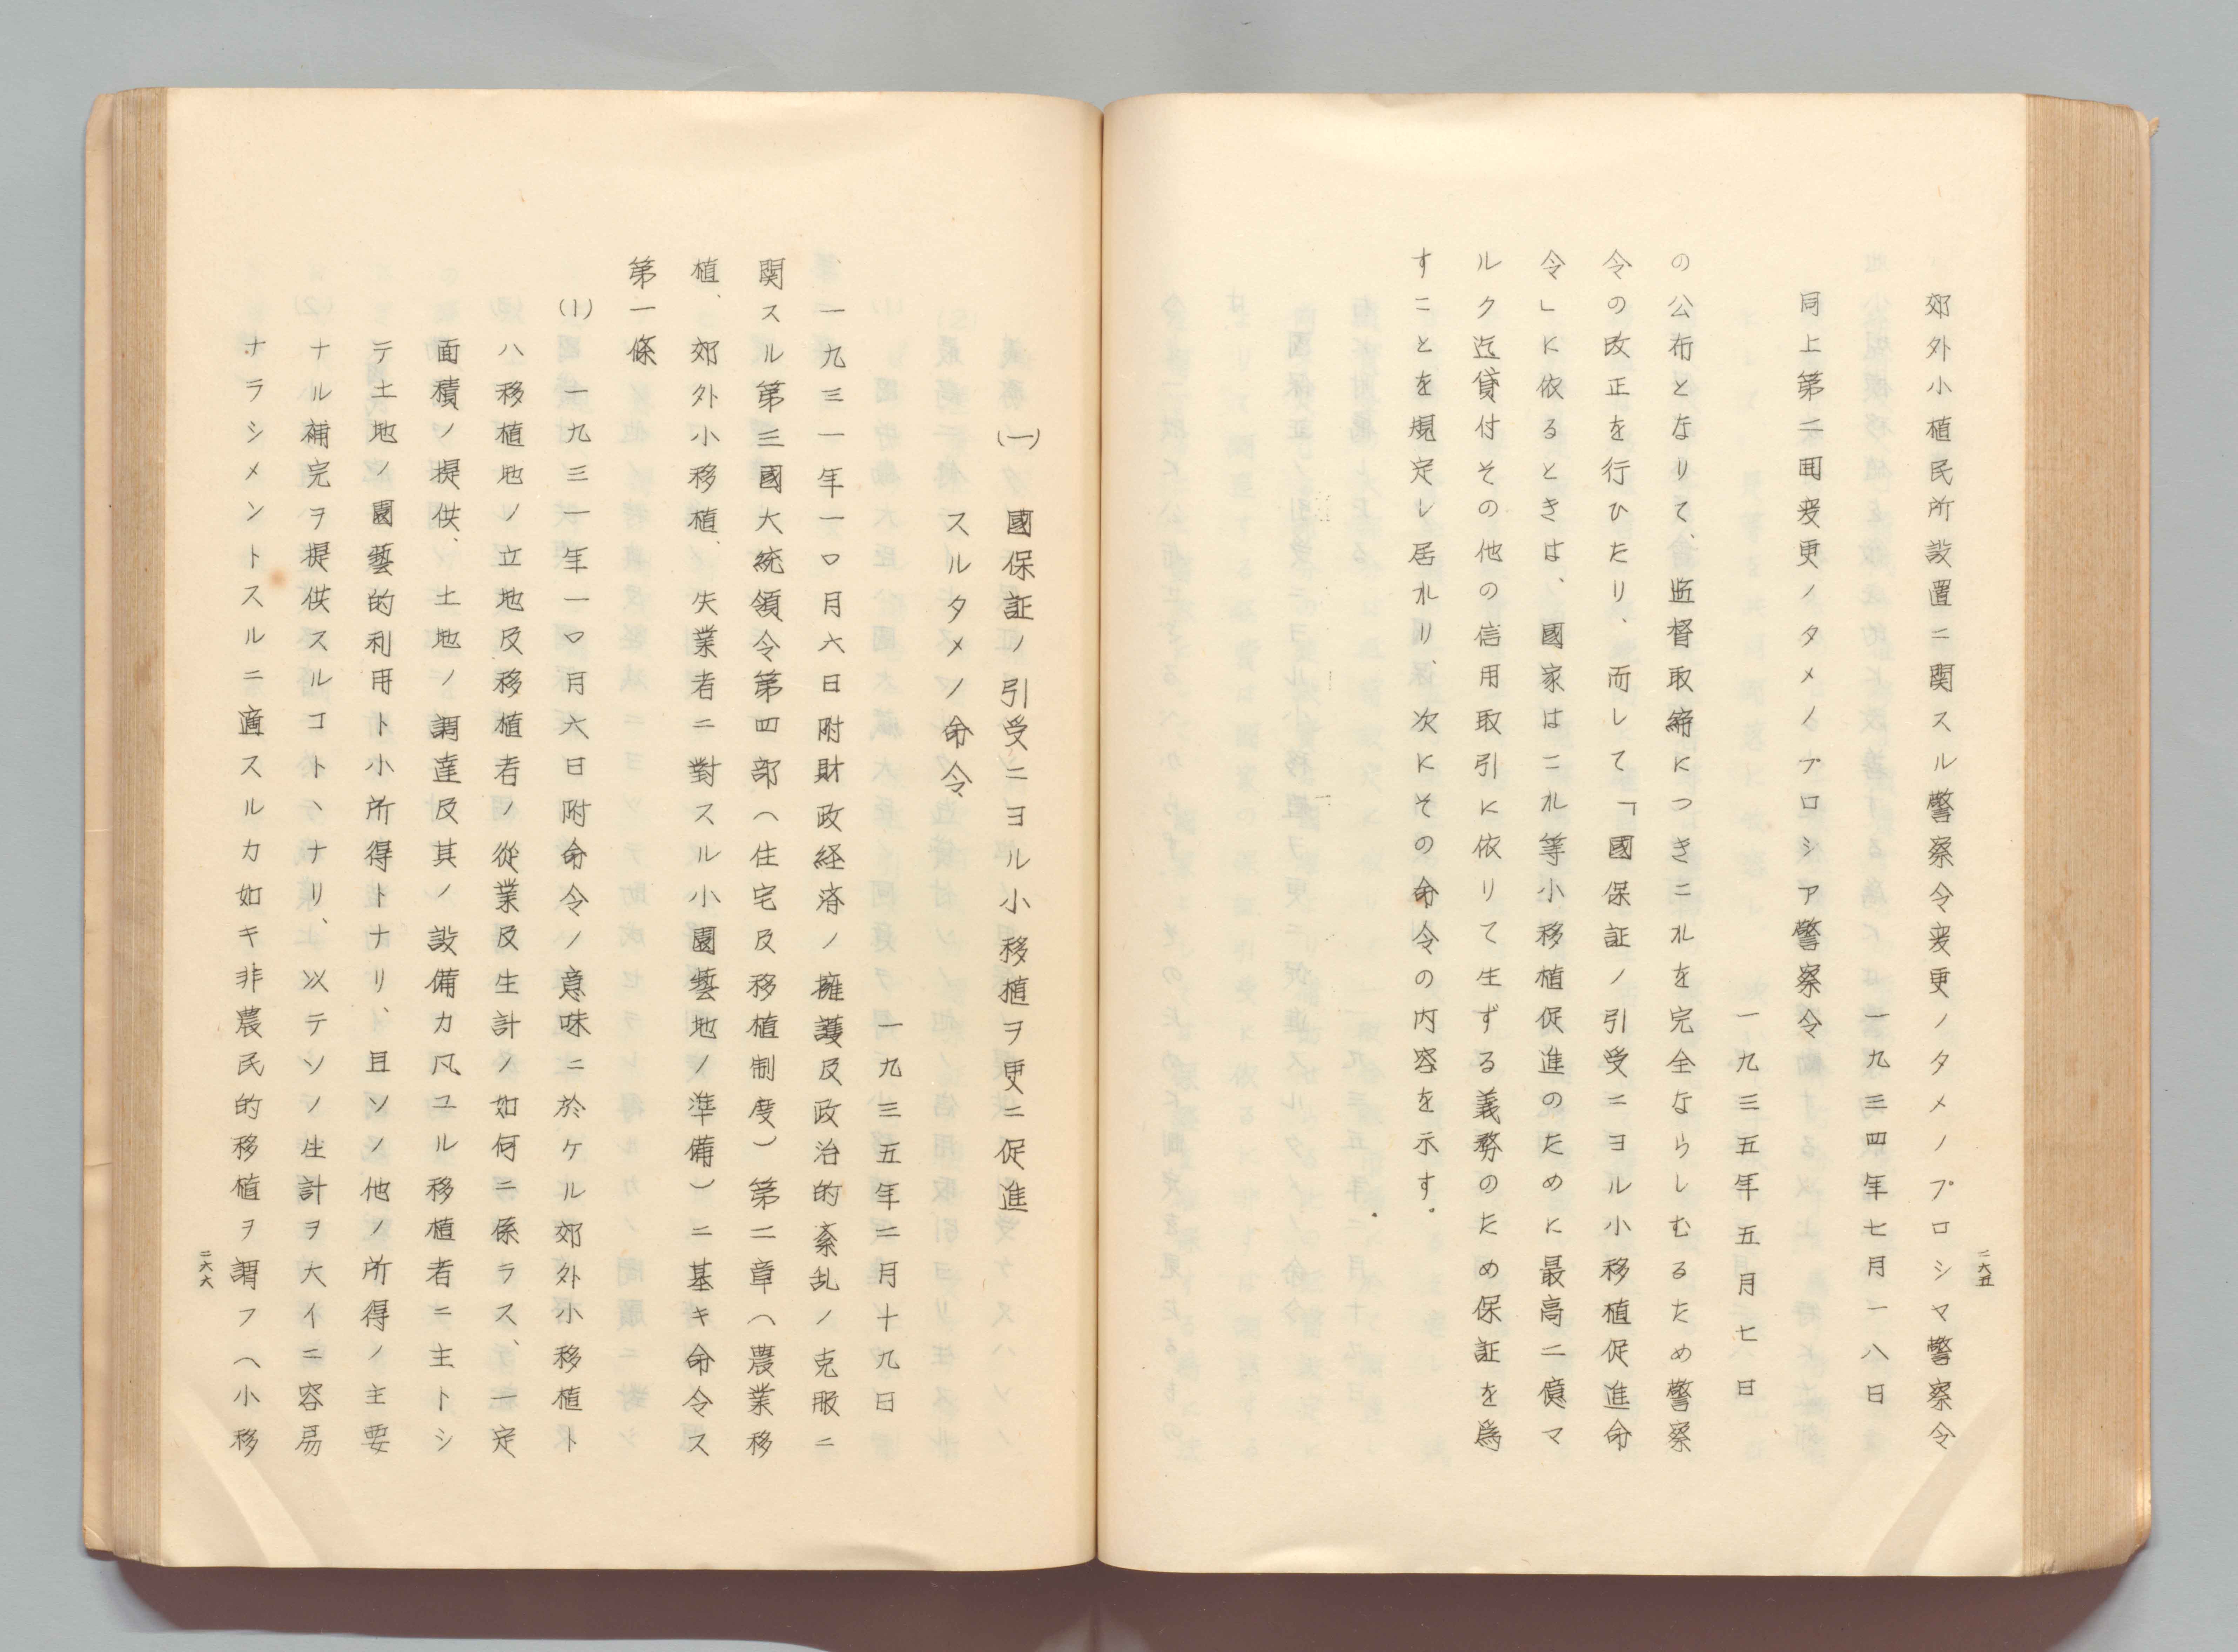 二六五
郊外小植民所設置ニ関スル警察令変更ノタメノプロシマ警察令
一九三四年七月一八日
同上第二囘変更ノタメノプロシア警察令
一九三五年五月七日
の公布となりて、監督取締につきこれを完全ならしむるため警察
令の改正を行ひたり、而して「國保証ノ引受ニヨル小移植促進命
令」に依るときは、國家はこれ等小移植促進のために最高二億マ
ルク迄貸付その他の信用取引に依りて生ずる義務のため保証を爲
すことを規定し居れり、次にその命令の内容を示す.
(一)國保証ノ引受ニヨル小移植ヲ更ニ促進
スルタメノ命令
一九三五年二月十九日
一九三一年一〇月六日附財政経済ノ擁護及政治的紊乱ノ克服ニ
関スル第三國大統領令第四部(住宅及移植制度)第二章(農業移
植、郊外小移植、失業者ニ對スル小園藝地ノ準備)ニ基キ命令ス
第一條
(1)一九三一年一〇月六日附命令ノ意味ニ於ケル郊外小移植ト
ハ移植地ノ立地及移植者ノ從業及生計ノ如何ニ係ラス、一定
面積ノ提供、土地ノ調達及其ノ設備カ凡ユル移植者ニ主トシ
テ土地ノ園藝的利用ト小所得トナリ、且ソノ他ノ所得ノ主要
ナル補完ヲ提供スルコトヽナリ、以テソノ生計ヲ大イニ容易
ナラシメントスルニ適スルカ如キ非農民的移植ヲ謂フ(小移
二六六